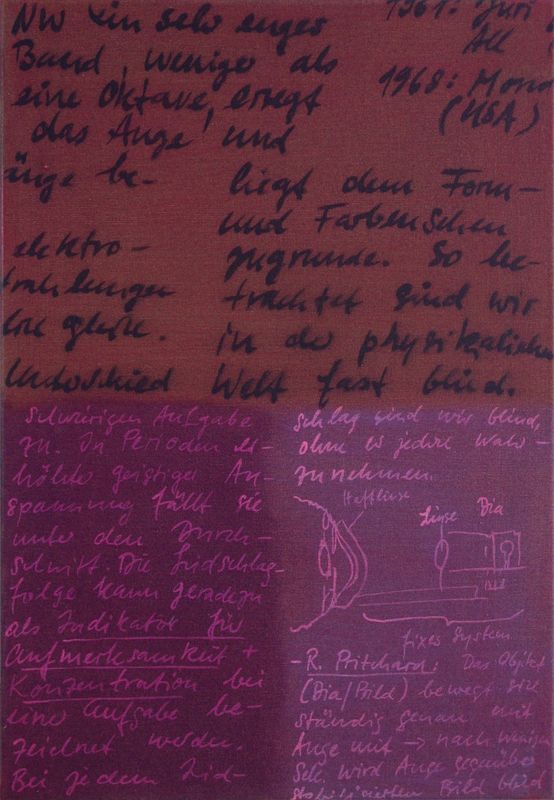 Nur ein sehr enges
Band, weniger als
eine Oktave, erregt
das Auge und
änge be-
elektro-
trahlungen
gleich.
Unterschied
1961: Juri
All
1968: Mond
(USA)
liegt dem Form-
und Farbensehen
zugrunde. So be-
trachtet sind wir
in der physikalischen
Welt fast blind.
schwierigen Aufgabe
zu. In Perioden er-
höhter geistiger An-
spannung fällt sie
unter den Durch-
schnitt. Die Lidschlag-
folge kann geradezu
als Indikator für
Aufmerksamkeit +
Konzentration bei
einer Aufgabe be-
zeichnet werden.
Bei jedem Lid-
schlag sind wir blind,
ohne es jedoch wahr-
zunehmen.
Haftlinse
Linse Dia
fixes System
- R. Pritchard: Das Objekt
(Dia/Bild) bewegt sich
ständig genau mit
Auge mit → nach wenigen
Sek. wird Auge gegenüber
stabilisierten Bild blind